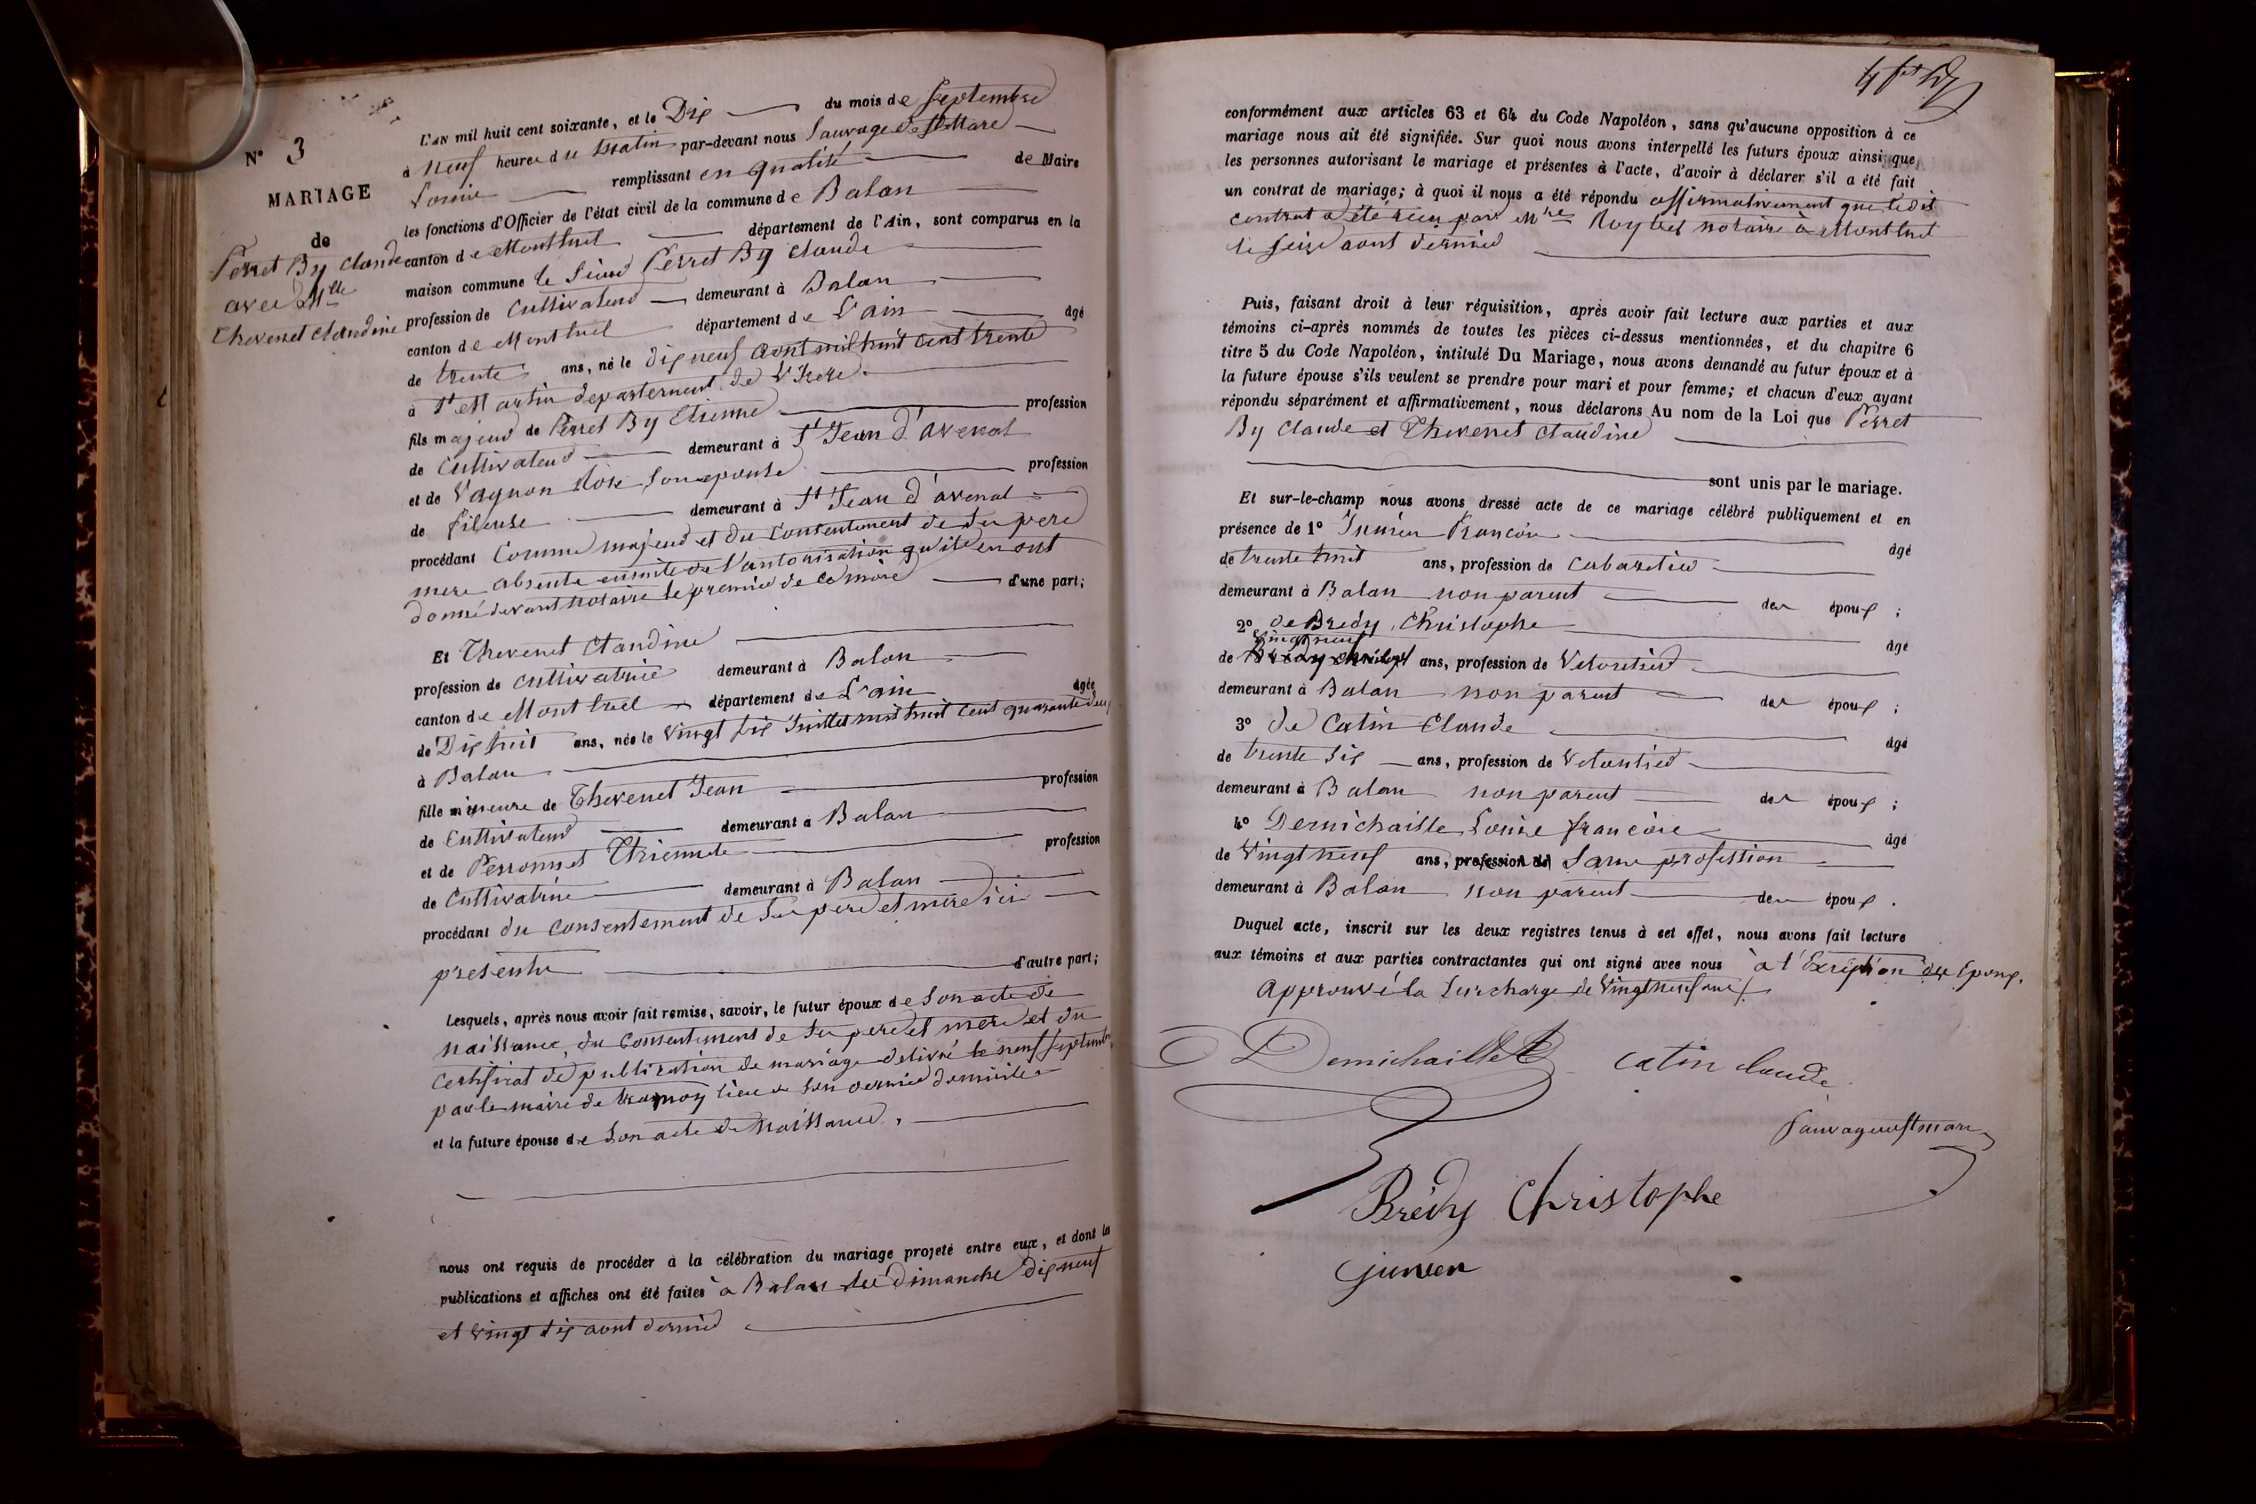 N° 3
MARIAGE
de
Perret By Claude
avec Mlle
Thevenet Claudine
L'AN mil huit cent soixante, et le Dix du mois de Septembre
à neuf heures du matin par-devant nous Sauvage de St Mare
Louis remplissant en qualité de Maire
les fonctions d'Officier de l'état civil de la commune de Balan
canton de Montluel département de l'Ain, sont comparus en la
maison commune le Sieur Perret By Claude
profession de Cultivateur demeurant à Balan
canton de Montluel département de L'ain âgé
de trente ans, né le dix neuf aout mil huit cent trente
à St Martin departement de L'Isere
fils majeur de Perret By Etienne profession
de Cultivateur demeurant à St Jean d'avenat
et de Vagnon Rose Son epouse profession
de fileuse demeurant à St Jean d'avenat
procédant Comme majeur et du Consentement de Ses pere
mere absents ensuite de l'autorisation qu'ils en ont
donné devant notaire le premier de ce mois d'une part;
Et Thevenet Claudine
profession de cultivatrice demeurant à Balan
canton de Montluel département de L'ain âgée
de Dix huit ans, née le Vingt Six Juillet mil huit Cent quarante deux
à Balan
fille mineure de Thevenet Jean profession
de Cultivateur demeurant à Balan
et de Perronnet Thiennete profession
de Cultivatrice demeurant à Balan
procédant du Consentement de Ses pere et mere ici
presents d'autre part;
Lesquels, après nous avoir fait remise, savoir, le futur époux de Son acte de
naissance, du Consentement de Ses pere et mere et du
Certificat de publication de mariage delivré le neuf Septembre
par le maire de lieu de Son dernier domicile
et la future épouse de Son acte de Naissance,
nous ont requis de procéder à la célébration du mariage projeté entre eux, et dont les
publications et affiches ont été faites à Balan les dimanche dix neuf
et Vingt Six aout dernier
conformément aux articles 63 et 64 du Code Napoléon, sans qu'aucune opposition à ce
mariage nous ait été signifiée. Sur quoi nous avons interpellé les futurs époux ainsi que
les personnes autorisant le mariage et présentes à l'acte, d'avoir à déclarer s'il a été fait
un contrat de mariage; à quoi il nous a été répondu affirmativement que ledit
contrat a été reçu par Mtre Roybet notaire à Montluel
le Seize aout dernier
Puis, faisant droit à leur réquisition, après avoir fait lecture aux parties et aux
témoins ci-après nommés de toutes les pièces ci-dessus mentionnées, et du chapitre 6
titre 5 du Code Napoléon, intitulé Du Mariage, nous avons demandé au futur époux et à
la future épouse s'ils veulent se prendre pour mari et pour femme; et chacun d'eux ayant
répondu séparément et affirmativement, nous déclarons Au nom de la Loi que Perret
By Claude et Thevenet Claudine
sont unis par le mariage.
Et sur-le-champ nous avons dressé acte de ce mariage célébré publiquement et en
présence de 1° François âgé
de trente huit ans, profession de Cabaretier
demeurant à Balan non parent des époux;
2° de Brédy Christophe âgé
de vingt neuf ans, profession de Veloutier
demeurant à Balan non parent des époux;
3° de Catin Claude âgé
de trente Six ans, profession de Veloutier
demeurant à Balan non parent des époux;
4° Demichaille Louise françoise âgé
de Vingt neuf ans, profession de Same profession
demeurant à Balan non parent des époux.
Duquel acte, inscrit sur les deux registres tenus à cet effet, nous avons fait lecture
aux témoins et aux parties contractantes qui ont signé avec nous à l'Exception des Epoux.
Approuvé la Surcharge de Vingt neuf ans
Demichaille
Catin Claude
Sauvage de St mare
Brédy Christophe